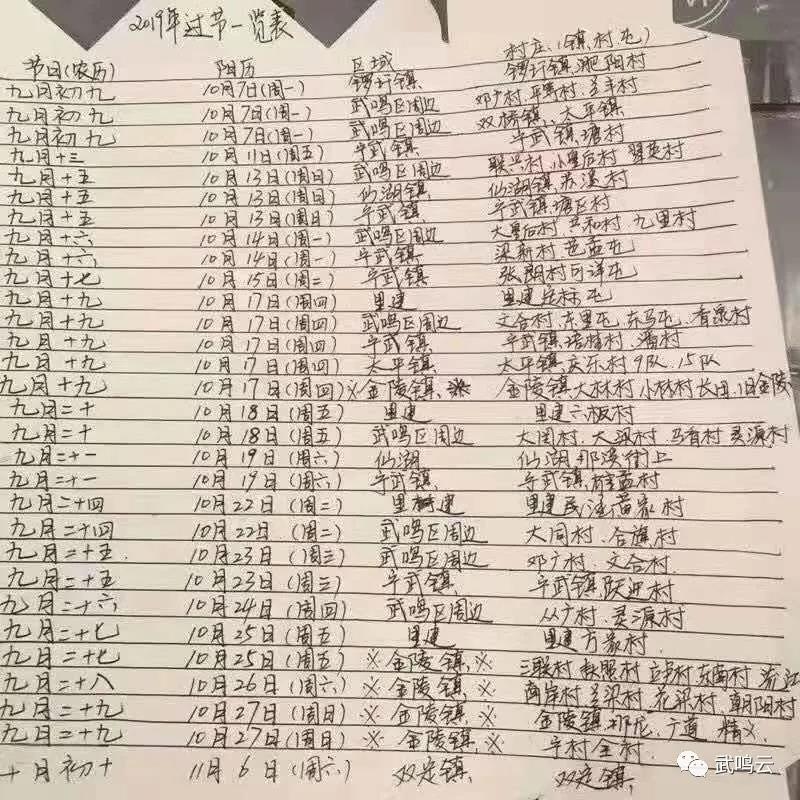 2019年过节一览表
节日(农历) 阳历 区域 村庄(镇、村、屯)
九月初九 10月7日(周一) 锣圩镇 锣圩镇 阳村
九月初九 10月7日(周一) 武鸣区周边 邓广村、平等村、兰丰村
九月初九 10月7日(周一) 武鸣区周边 双桥镇、太平镇
九月十三 10月11日(周五) 宁武镇 宁武镇、塘村
九月十五 10月13日(周日) 武鸣区周边 联兴村、小皇后村
九月十五 10月13日(周日) 仙湖镇 仙湖镇、苏溪村
九月十五 10月13日(周日) 宁武镇 宁武镇、塘区村
九月十六 10月14日(周一) 武鸣区周边 大皇后村、共和村、九里村
九月十六 10月14日(周一) 宁武镇 梁新村、屯
九月十七 10月15日(周二) 宁武镇 张朗村可译屯
九月十九 10月17日(周四) 里建 里建 屯
九月十九 10月17日(周四) 武鸣区周边 文合村、东里屯、东马屯、村
九月十九 10月17日(周四) 宁武镇 宁武镇、村、潘村
九月十九 10月17日(周四) 太平镇 太平镇、庆乐村9队、15队
九月十九 10月17日(周四) ※金陵镇、※ 金陵镇、大林村、小林村、长田、旧金陵
九月二十 10月18日(周五) 里建 里建六板村
九月二十 10月18日(周五) 武鸣区周边 大同村、大梁村、马香村、灵源村
九月二十一 10月19日(周六) 仙湖 仙湖、那溪街上
九月二十一 10月19日(周六) 宁武镇 宁武镇、村
九月二十四 10月22日(周二) 里建 里建 黄家村
九月二十四 10月22日(周二) 武鸣区周边 大同村、合旗村
九月二十五 10月23日(周三) 武鸣区周边 邓广村、文合村
九月二十五 10月23日(周三) 宁武镇 宁武镇、跃进村
九月二十六 10月24日(周四) 武鸣区周边 从广村、灵源村
九月二十七 10月25日(周五) 里建 里建方家村
九月二十七 10月25日(周五) ※金陵镇、※ 三联村、村、东南村
九月二十八 10月26日(周六) ※金陵镇、※ 两岸村、兰梁村、花梁村、朝阳村
九月二十九 10月27日(周日) ※金陵镇、※ 金陵镇、那龙、广道、精义
九月二十九 10月27日(周日) ※金陵镇、※ 宁村全村
十月初十 11月6日(周六) 双定镇 双定镇
武鸣云